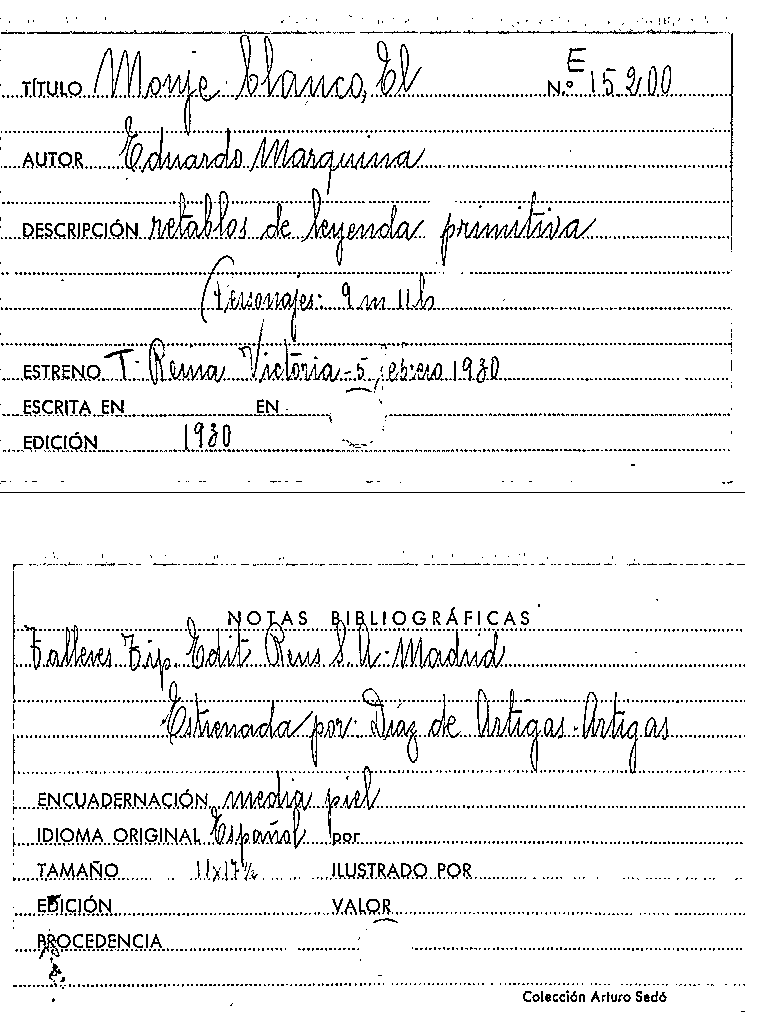 TÍTULO Monje blanco, El N.º E 15200
AUTOR Eduardo Marquina
DESCRIPCIÓN retablos de leyenda primitiva
(Personajes: 9 m 11 h
ESTRENO T. Reina Victoria - 5 febrero 1930
ESCRITA EN EN
EDICIÓN 1930
NOTAS BIBLIOGRÁFICAS
Talleres Tip. Edit Reus S.A. - Madrid
Estrenada por: Díaz de Artigas - Artigas
ENCUADERNACIÓN media piel
IDIOMA ORIGINAL Español por
TAMAÑO 11x17½ ILUSTRADO POR
EDICIÓN VALOR
PROCEDENCIA
Colección Arturo Sedó